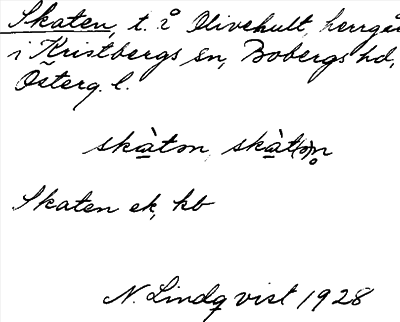 Skaten, t. å Olivehult, herrgår
i Kristbergs sn, Bobergs hd,
Österg. l.
skàtən, skàt(ə)n̥
Skaten ek, kb
N. Lindqvist 1928